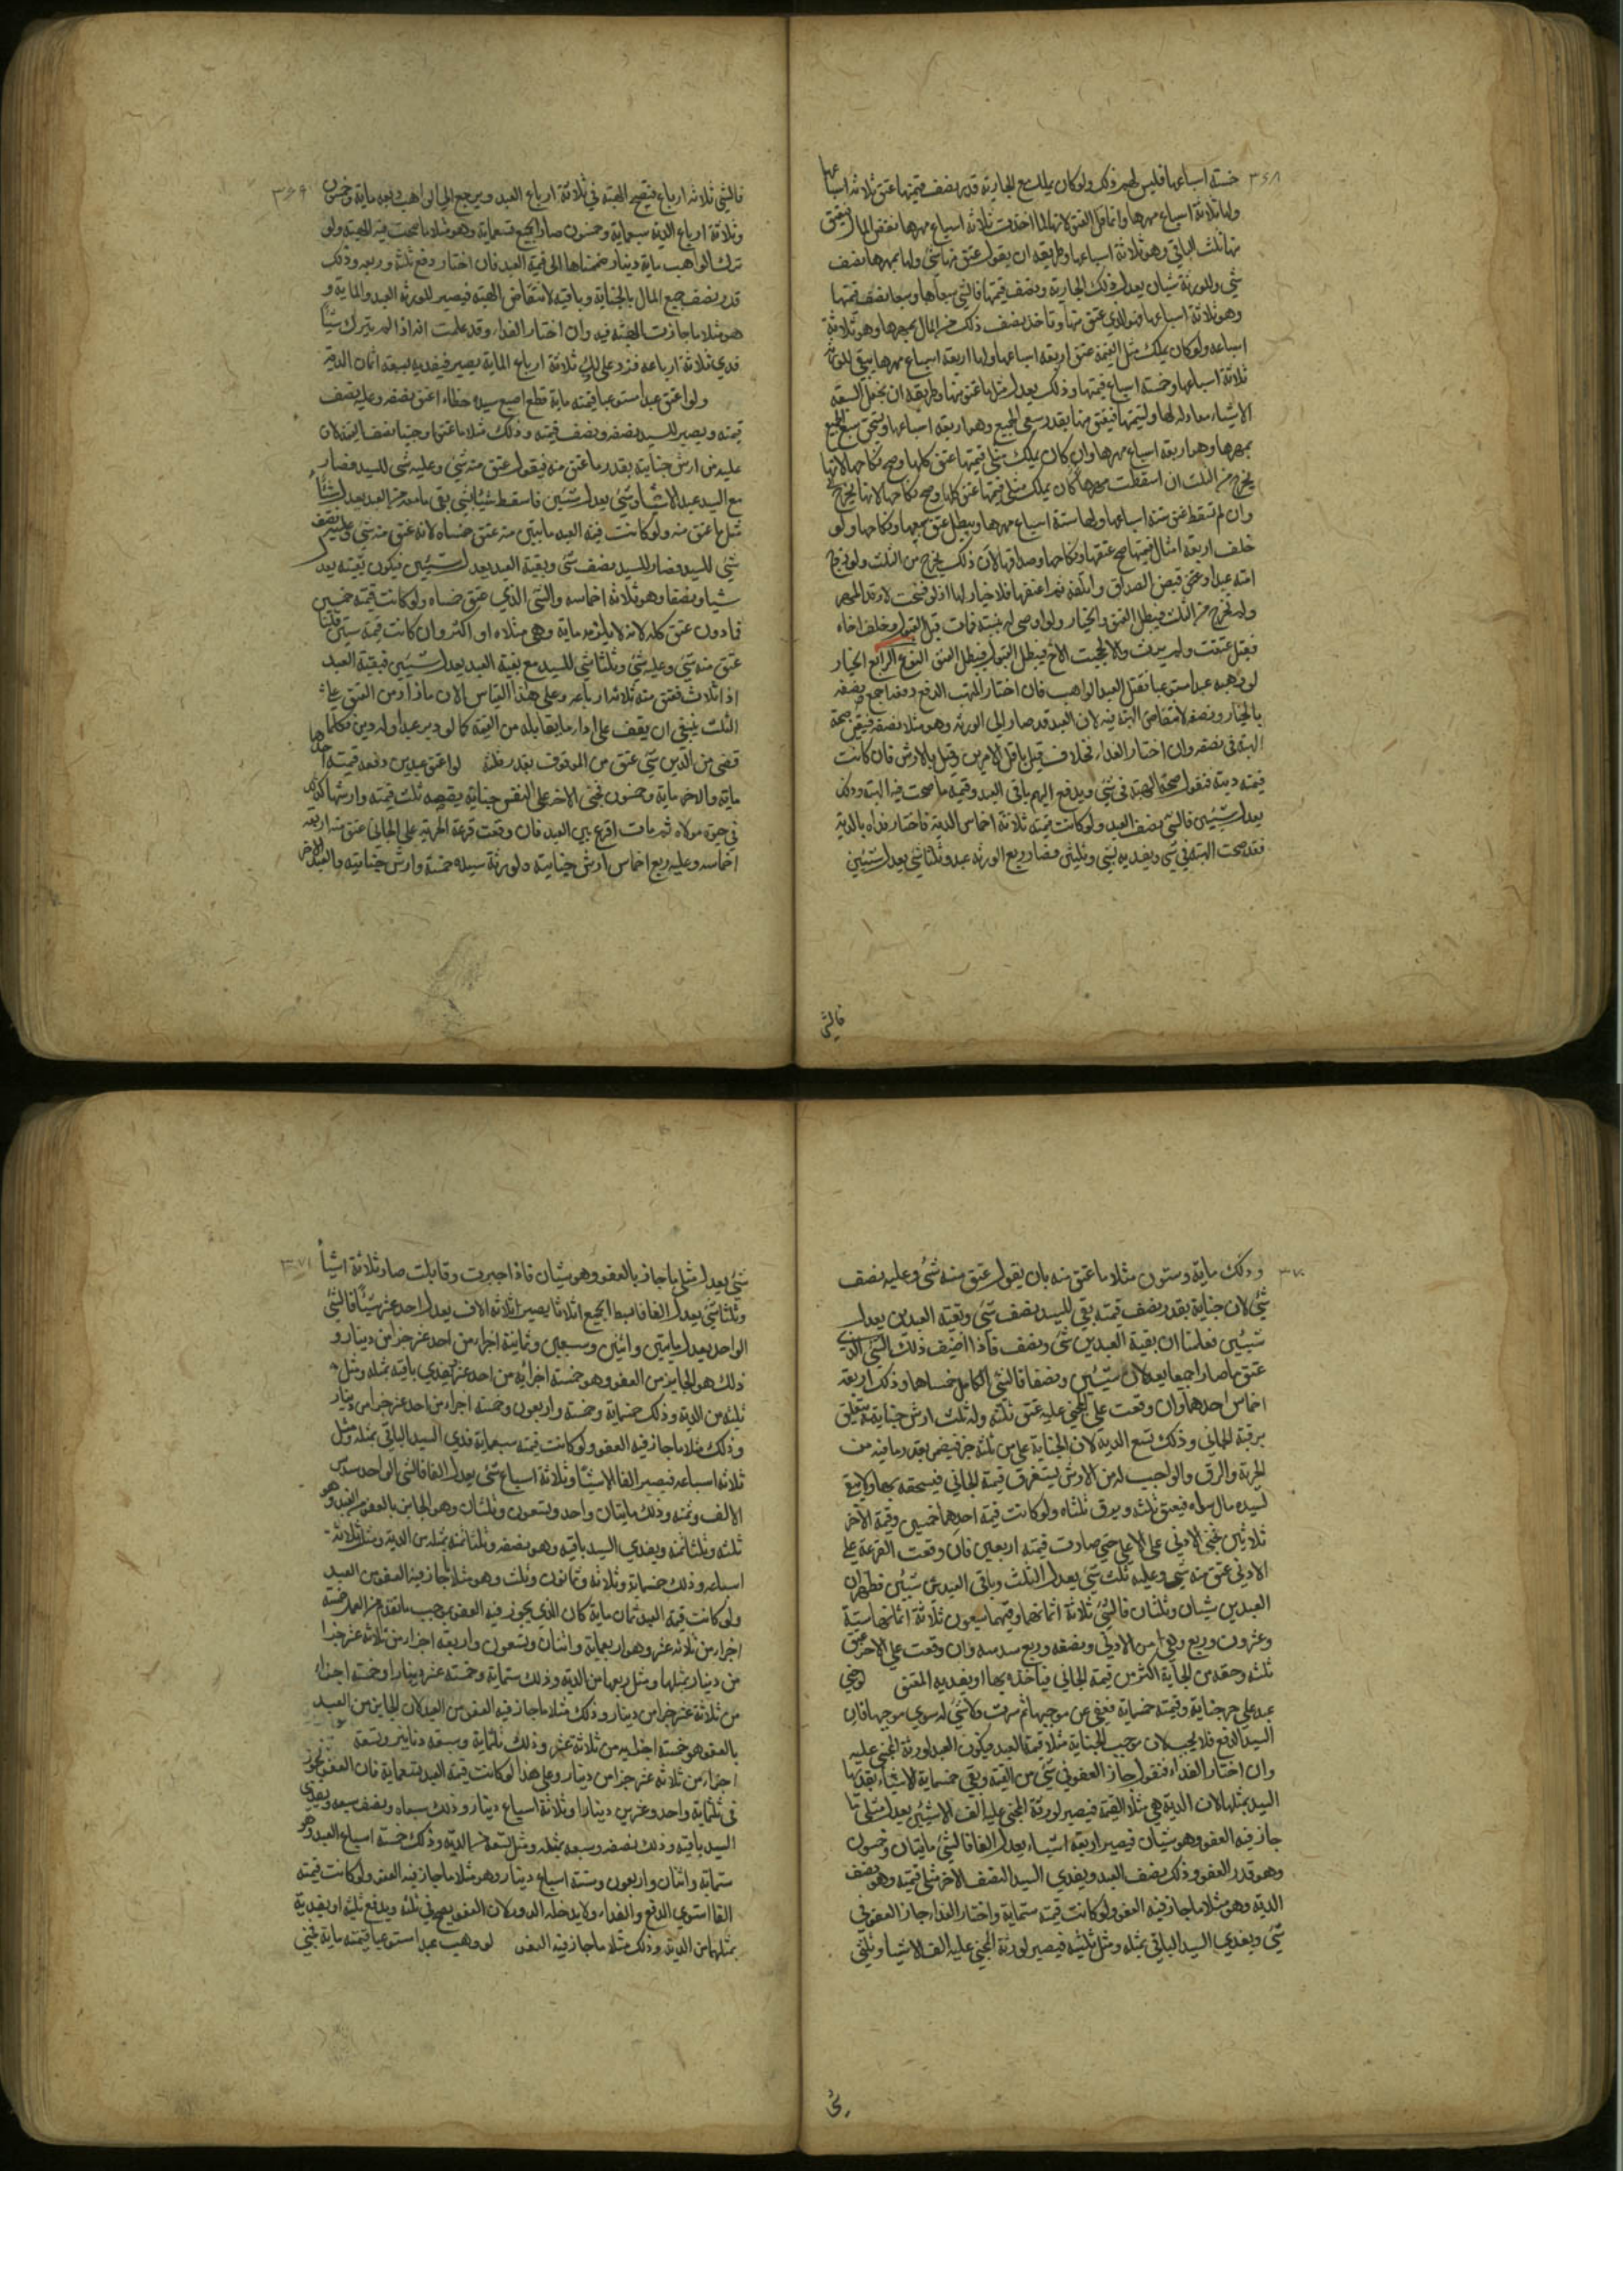 ٣٦٨
خمسة اسباعها فليس لهم ذلك ولو كان يملك مع الجارية قدر نصف قيمتها عتق ثلاثة اسباعها
ولها ثلاثة اسباع مهرها وانما قل العتق لانها لما اخذت ثلاثة اسباع مهرها نقص المال فيعتق
منها ثلث الباقي وهو ثلاثة اسباعها وطريقه ان يقول عتق منها شئ ولها بمهرها نصف
شئ وللورثة شيان يعدل ذلك الجارية ونصف قيمتها فالشئ سبعاها وسبعا نصف قيمتها
وهو ثلاثة اسباعها فهو الذي عتق منها وتاخذ نصف ذلك من المال بمهرها وهو ثلاثة
اسباعه ولو كان يملك مثل القيمة عتق اربعة اسباعها ولها اربعة اسباع مهرها يبقى للورثة
ثلاثة اسباعها وخمسة اسباع قيمتها وذلك يعدل مثلي ما عتق منها وطريقه ان تجعل السبعة
الاشياء معادلة لها ولقيمتها فيعتق منها بقدر سبعي الجميع وهو اربعة اسباعها وتستحق سبع الجميع
بمهرها وهو اربعة اسباع مهرها وان كان يملك مثلي قيمتها عتق كلها وصح نكاحها لانها
يخرج من الثلث ان اسقطت مهرها
وان لم تسقط عتق ستة اسباعها ولها ستة اسباع مهرها ويبطل عتق سبعها ونكاحها ولو
خلف اربعة امثال قيمتها صح عتقها ونكاحها وصداقها لان ذلك يخرج من الثلث ولو زوج
امته عبدا وعتق قبض الصداق واتلفه ثم اعتقها فلا خيار لها اذ لو فسخت لارتد المهر
ولم تخرج من الثلث فيبطل العتق والخيار ولو اوصى له ببنته فمات قبل القبول وخلف اخاه
فقبل عتقت ولم يرث والا لحجبت الاخ فيبطل القبول فيبطل العتق النوع الرابع الخيار
لو وهبه عبدا مستوعبا فقتل العبد الواهب فان اختار المتهب الدفع دفعه اجمع نصفه
بالخيار ونصفه لانتقاض الهبة فيه لان العبد قد صار الى الورثة وهو مثلا نصفه فتبقى صحة
الهبة في نصفه وان اختار الفداء فخلاف قيل باقل الامرين وقيل بالارش فان كانت
قيمته دية فنقول صحة الهبة في شئ ويدفع اليهم باقي العبد وقيمة ما صحت فيه الهبة وذلك
يعدل شيئين فالشئ نصف العبد ولو كانت قيمته ثلاثة اخماس الدية فاختار فداه بالدية
فقد صحت الهبة في شئ ويفديه بشئ وثلثي فصار مع الورثة عبد وثلثا شئ يعدل شيئين
فالشي
٣٦٩
فالشي ثلاثة ارباع فتصح الهبة في ثلاثة ارباع العبد ويرجع الى الواهب ربعه ماية وخمسون
وثلاثة ارباع الدية سبعماية وخمسون صار الجميع تسعماية وهو مثلا ما صحت فيه الهبة ولو
ترك الواهب ماية دينار ضممناها الى قيمة العبد فان اختار دفع ثلثه وربعه وذلك
قدر نصف جميع المال بالجناية وباقيه لانتقاض الهبة فيصير للورثة العبد والماية و
هو مثلا ما جازت الهبة فيه وان اختار الفداء وقد علمت انه اذا لم يترك شيئا
فدى ثلاثة ارباعه فزد على ذلك ثلاثة ارباع الماية يصير فيفديه لسبعة اثمان الدية
ولو اعتق عبدا مستوعبا قيمته ماية قطع اصبع سيده خطاء عتق نصفه وعليه نصف
قيمته ويصير للسيد نصفه ونصف قيمته وذلك مثلا ما عتق واوجبنا نصف القيمة لان
عليه من ارش جنايته بقدر ما عتق منه فيقول عتق منه شئ وعليه شئ للسيد فصار
مع السيد عبد الا شيئا وشئ يعدل شيئين فاسقط شيئا بشئ بقي ما معه من العبد يعدل شيئا
مثل ما عتق منه ولو كانت قيمة العبد مايتين عتق خمساه لانه عتق منه شئ وعليه نصف
شئ للسيد فصار للسيد نصف شئ وبقية العبد يعدل شيئين فيكون بقيته يعدل
شيا ونصفا وهو ثلاثة اخماسه والشئ الذي عتق خمساه ولو كانت قيمته خمسين
فما دون عتق كله لانه لا يلزمه ماية وهي مثلاه او اكثر وان كانت قيمته ستين قلنا
عتق منه شئ وعليه شئ وثلثا شئ للسيد مع بقية العبد يعدل شيئين فبقية العبد
اذا ثلاث فعتق منه ثلاثة ارباعه وعلى هذا القياس الا ان ما زاد من العتق على
الثلث ينبغي ان يقف على اداء ما يقابله من القيمة كما لو دبر عبدا وله دين فكلما
قضى من الدين شئ عتق من الموقوف بقدر ثلثه لو اعتق عبدين دفعة قيمة احدهما
ماية والاخر ماية وخمسون فجنى الاخر على النفيس جناية بنقصه ثلث قيمته وارشها كذلك
في حيوة مولاه ثم مات اقرع بين العبدين فان وقعت قرعة الحرية على الجاني عتق منه اربعة
اخماسه وعليه ربع اخماس ارش جنايته ولورثة سيده خمسه وارش جنايته والعبد الاخر
٣٧٠
وذلك ماية وستون مثلا ما عتق منه بان يقول عتق منه شئ وعليه نصف
شئ لان جنايته بقدر نصف قيمته بقي للسيد نصف شئ وبقية العبدين يعدل
شيئين فعلمنا ان بقية العبدين شئ ونصف فاذا اضيف ذلك الى الشئ الذي
عتق منه صارا جميعا يعدلان شيئين ونصفا فالشئ الكامل خمساهما وذلك اربعة
اخماس احدهما وان وقعت على المجني عليه عتق ثلثه وله ثلث ارش جنايته يتعلق
برقبة الجاني وذلك تسع الدية لان الجناية على من ثلثه حر فيضمن بقدر ما فيه من
الحرية والرق والواجب له من الارش يستغرق قيمة الجاني فيستحقه بها ولا يبقى
لسيده مال سواه فيعتق ثلثه ويرق ثلثاه ولو كانت قيمة احدهما خمسين وقيمة الاخر
ثلاثين فجنى الادنى على الاعلى حتى صارت قيمته اربعين فان وقعت القرعة على
الادنى عتق منه شئ وعليه ثلث شئ يعدل الثلث وباقي العبدين شيئين فظهر ان
العبدين شيئان وثلثان فالشئ ثلاثة اثمانهما وقيمتهما سبعون ثلاثة اثمانها ستة
وعشرون وربع وهو من الادنى ونصفه وربع سدسه وان وقعت على الاخر عتق
ثلثه وحقه من الجناية اكثر من قيمة الجاني فياخذه بها او يفديه المعتق لو جنى
عبد على حر جناية وقيمته خمسماية فعفى عن موجبها ثم سرت ولا شئ له سوى موجبها فان
السيد الدفع فلا يجب لان موجب الجناية مثلا قيمة العبد فيكون العبد لورثة المجني عليه
وان اختار الفداء فنقول جاز العفو في شئ من القيمة وبقي خمسماية الا شيئا يفديها
السيد بمثلها لان الدية هي مثلا القيمة فيصير لورثة المجني عليه الف الا شيئين يعدل مثلي ما
جاز فيه العفو وهو شيئان فيصير اربعة اشياء يعدل الفا فالشئ مايتان وخمسون
وهو قدر العفو وذلك نصف العبد ويفدي السيد النصف الاخر مثلي قيمته وهو نصف
الدية وهو مثلا ما جاز فيه العفو ولو كانت قيمته ستماية واختار الفداء جاز العفو في
شئ ويفدي السيد الباقي بمثله ومثل ثلثيه فيصير لورثة المجني عليه الف الا شيئا وثلثي
شئ
٣٧١
شئ يعدل مثلي ما جاز بالعفو وهو شيئان فاذا جبرت وقابلت صار ثلاثة اشيأ
وثلثا شئ يعدل الفا فابسط الجميع اثلاثا يصير ثلاثة الاف يعدل احد عشر شيئا فالشئ
الواحد يعدل مايتين واثنين وسبعين وثمانية اجزاء من احد عشر جزا من دينار و
ذلك هو الجايز من العفو وهو خمسة اجزائه من احد عشر يفدي باقيه بمثله ومثل
ثلثيه من الدية وذلك خمسماية وخمسة واربعون وخمسة اجزاء من احد عشر جزا من دينار
وذلك مثلا ما جاز فيه العفو ولو كانت قيمته سبعماية فدى السيد الباقي بمثله ومثل
ثلاثة اسباعه فيصير الفا الا شيئا وثلاثة اسباع شئ يعدل الفا فالشئ الواحد سدس
الالف وثمنه وذلك مايتان واحد وتسعون وثلثان وهو الجايز بالعفو من العبد وهو
ثلثه وثلثا ثمنه ويفدي السيد باقيه وهو نصفه وثلثا ثمنه بمثله من الدية ومثل ثلاثة
اسباعه وذلك خمسماية وثلاثة وثمانون وثلث وهو مثلا ما جاز فيه العفو من العبد
ولو كانت قيمة العبد ثمان ماية كان الذي يجوز فيه العفو بموجب ما تقدم من العمل خمسة
اجزاء من ثلاثة عشر وهو اربعماية واثنان وتسعون واربعة اجزاء من ثلاثة عشر جزا
من دينار بمثلها ومثل ربعها من الدية وذلك ستماية وخمسة عشر دينارا وخمسة اجزاء
من ثلاثة عشر جزا من دينار وذلك مثلا ما جاز فيه العفو من العبد لان الجايز من العبد
بالعفو هو خمسة اجزاء من ثلاثة عشر وذلك ثلثماية وسبعة دنانير وتسعة
اجزاء من ثلاثة عشر جزا من دينار وعلى هذا لو كانت قيمة العبد تسعماية فان العفو يجوز
في ثلثماية واحد وعشرين دينارا وثلاثة اسباع دينار وذلك سبعاه ونصف سبعه ويفدي
السيد باقيه وذلك نصفه وسبعه بمثله ومثل تسعه من الدية وذلك خمسة اسباع العبد وهو
ستماية واثنان واربعون وستة اسباع دينار وهو مثلا ما جاز فيه العفو ولو كانت قيمته
الفا استوى الدفع والفداء ولا يدخله الدور لان العفو يصح في ثلثه ويدفع ثلثيه او يفديه
بمثلهما من الدية وذلك مثلا ما جاز فيه العفو لو وهب عبدا مستوعبا قيمته ماية فجنى